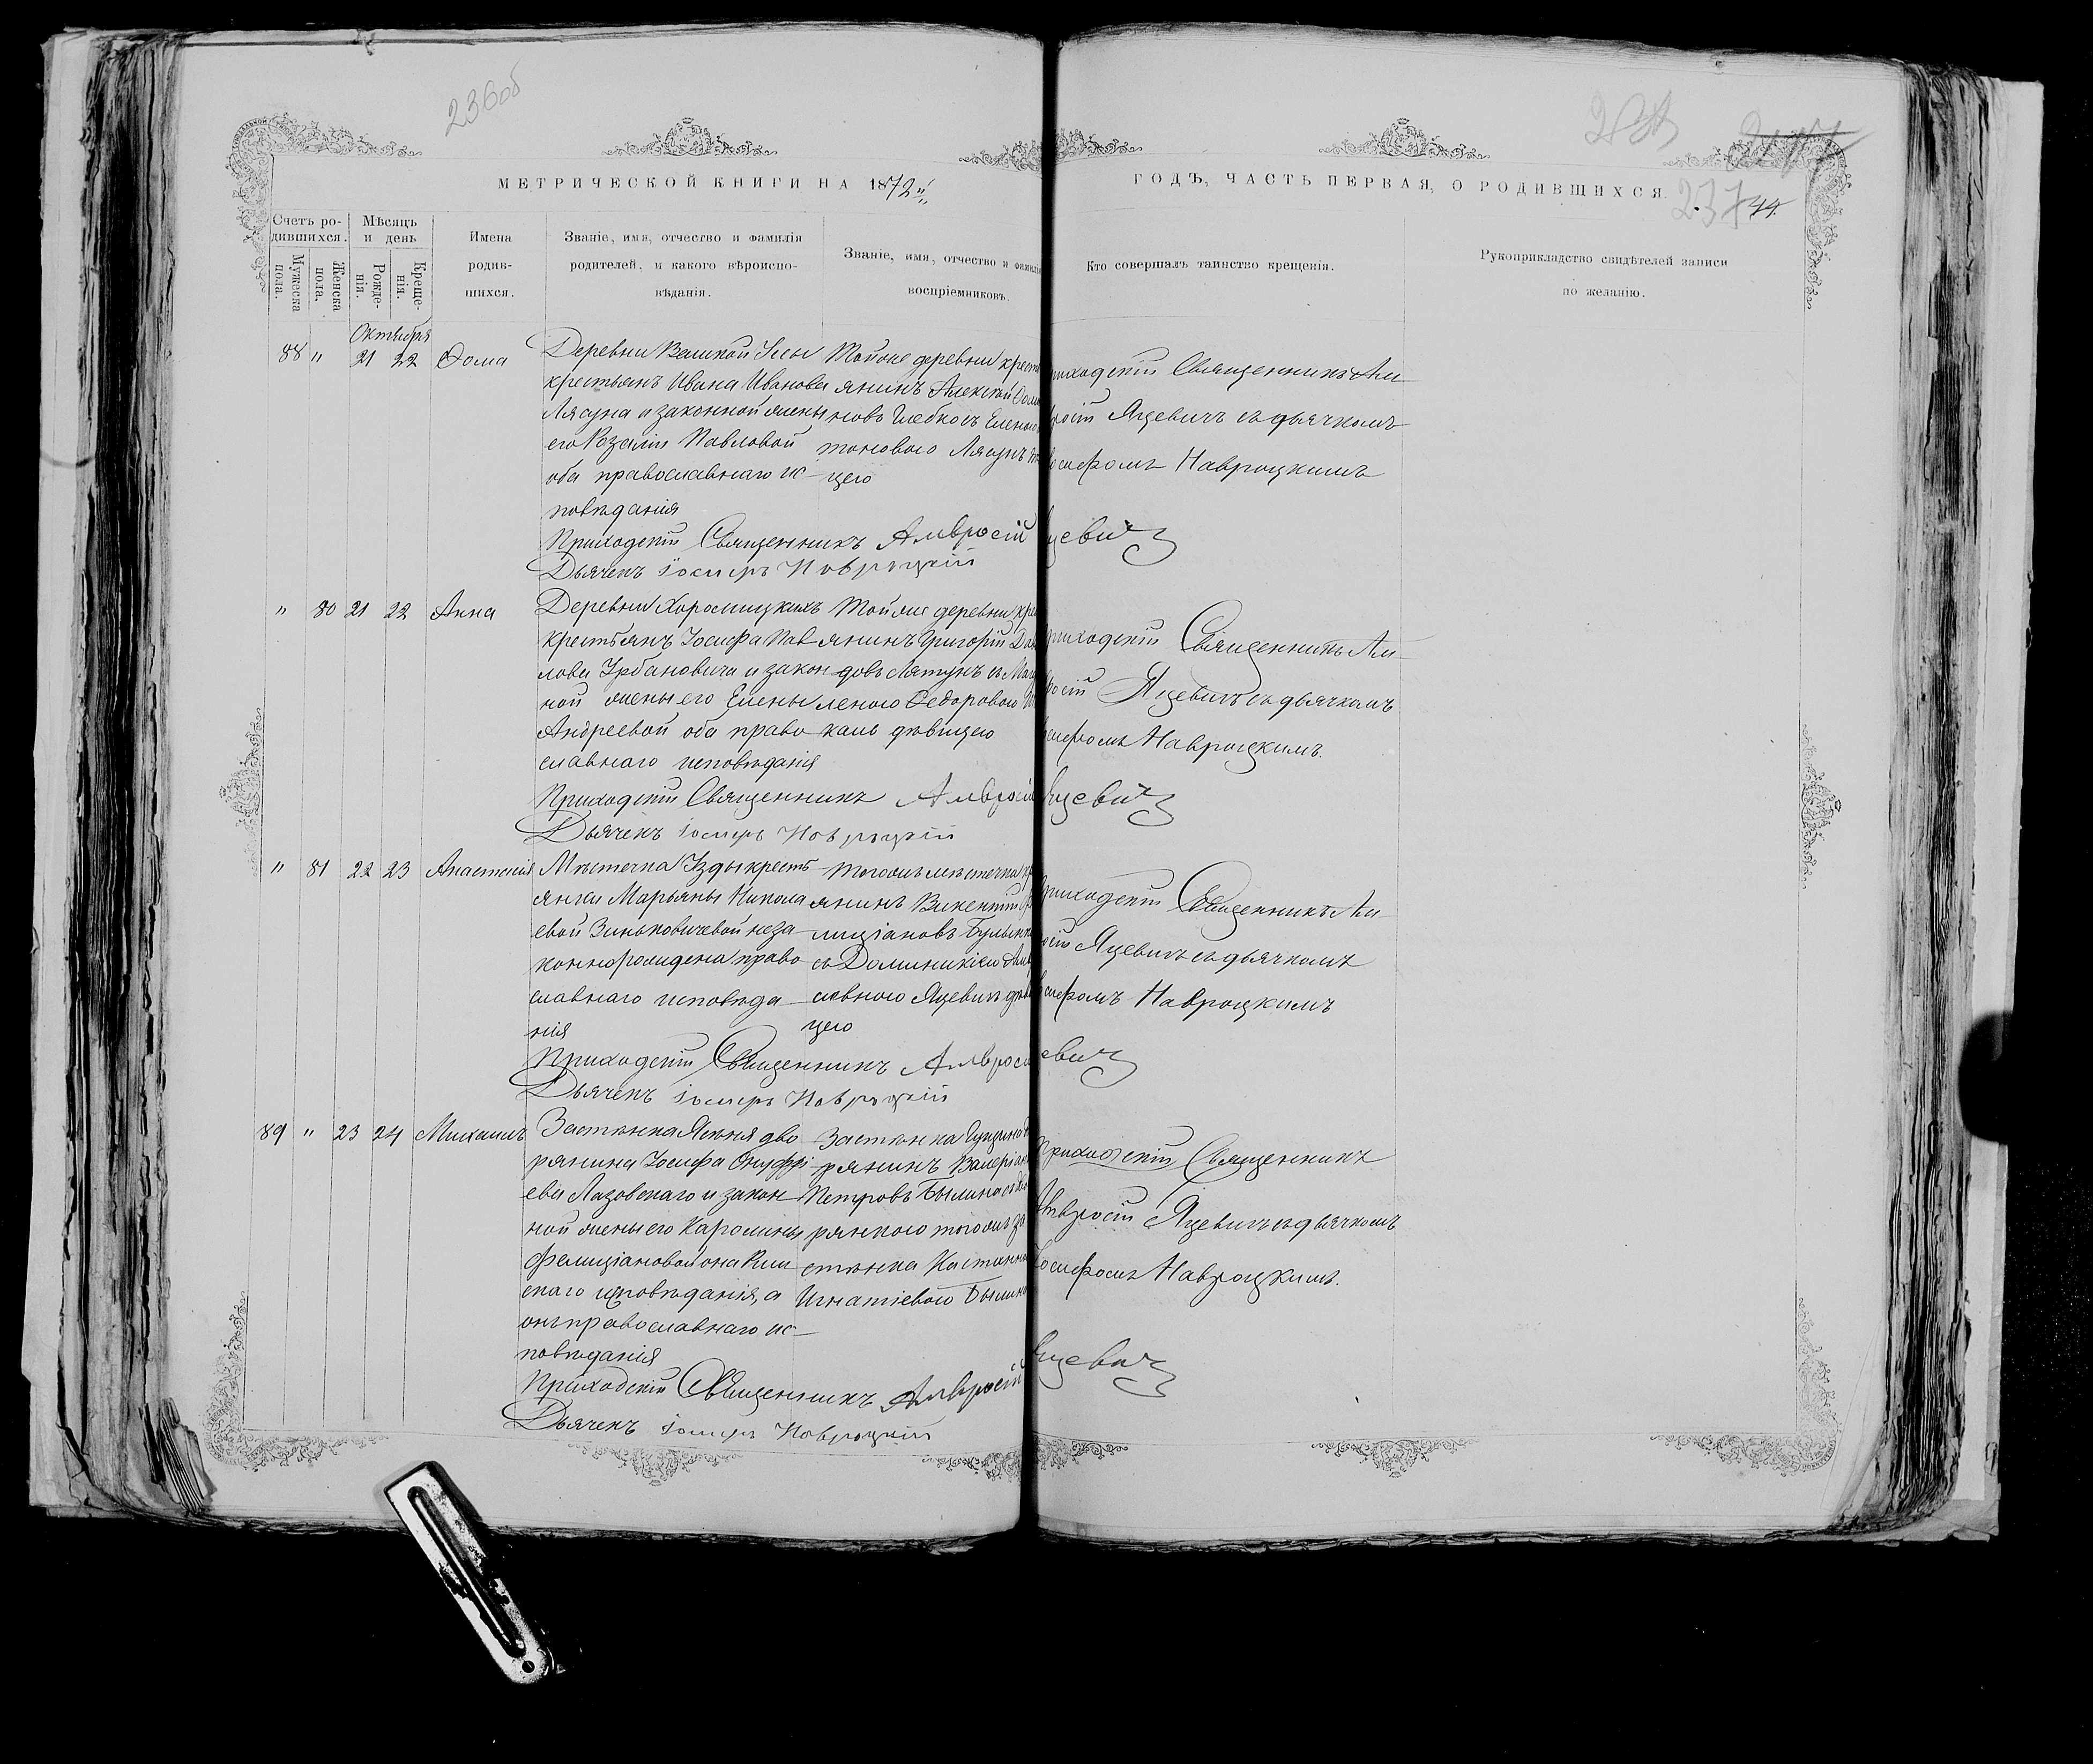 236об
237
44.
МЕТРИЧЕСКОЙ КНИГИ НА 1872й
ГОДЪ, ЧАСТЬ ПЕРВАЯ, О РОДИВШИХСЯ.
Счетъ родившихся.
Мужеска пола.
Женска пола.
Мѣсяцъ и день
Рожденія.
Крещенія.
Имена родившихся.
Званіе, имя, отчество и фамилія
родителей, и какого вѣроиспо-
вѣданія.
Званіе, имя, отчество и фамилія
воспріемниковъ.
Кто совершалъ таинство крещенія.
Рукоприкладство свидѣтелей записи
по желанію.
Октября
88 " 21 22 Ѳома
Деревни Великой Усы
крестьянъ Ивана Иванова
Лясуна и законной жены
его Розаліи Павловой
оба православнаго ис-
повѣданія
Тойже деревни крест
янинъ Алексѣй
новъ Глебко съ Еленою
тоновою Лясунъ
цею
Приходскій Священникъ Ам
росій Яцевичъ съ дьячкомъ
осифомъ Навроцкимъ
Приходскій Священникъ Амвросій Яцевичъ
Дьячекъ Іосифъ Навроцкій
" 80 21 22 Анна
Деревни Хоромицкихъ
крестьянъ Іосифа Пав
лова Урбановича и закон
ной жены его Елены
Андреевой оба право
славнаго исповѣданія
Той же деревни кре
янинъ Григорій
довъ Лятунъ съ Маг
леною Ѳедоровою
каль дѣвицею
Приходскій Священникъ Ам
росій Яцевичъ съ дьячкомъ
осифомъ Навроцкимъ.
Приходскій Священникъ Амвросій Яцевичъ
Дьячекъ Іосифъ Навроцкій
" 81 22 23 Анастасія
Мѣстечка Узды крестъ
янки Марьяны Никола
евой Зиньковичевой неза
коннорождена право
славнаго исповѣда
нія
Тогожъ мѣстечка кр
янинъ Викентій
лиціановъ Булы
съ Доминикіею Ам
сіевною Яцевичъ дѣви
цею
Приходскій Священникъ Ам
росій Яцевичъ съ дьячкомъ
осифомъ Навроцкимъ
Приходскій Священникъ Амвросій Яцевичъ
Дьячекъ Іосифъ Навроцкій
89 " 23 24 Михаилъ
Застѣнка Ясѣня дво
рянина Іосифа Онуфрі
ева Лазовскаго и закон
ной жены его Каролины
Фелиціановой она Рим
скаго исповѣданія, а
онъ православнаго ис-
повѣданія
Застѣнка
рянинъ Валеріан
Петровъ Былина съ
рянкою тогожъ за
стѣнка
Игнатіевою Былина
Приходскій Священникъ
Амвросій Яцевичъ съ дьячкомъ
Іосифомъ Навроцкимъ.
Приходскій Священникъ Амвросій Яцевичъ
Дьячекъ Іосифъ Навроцкій